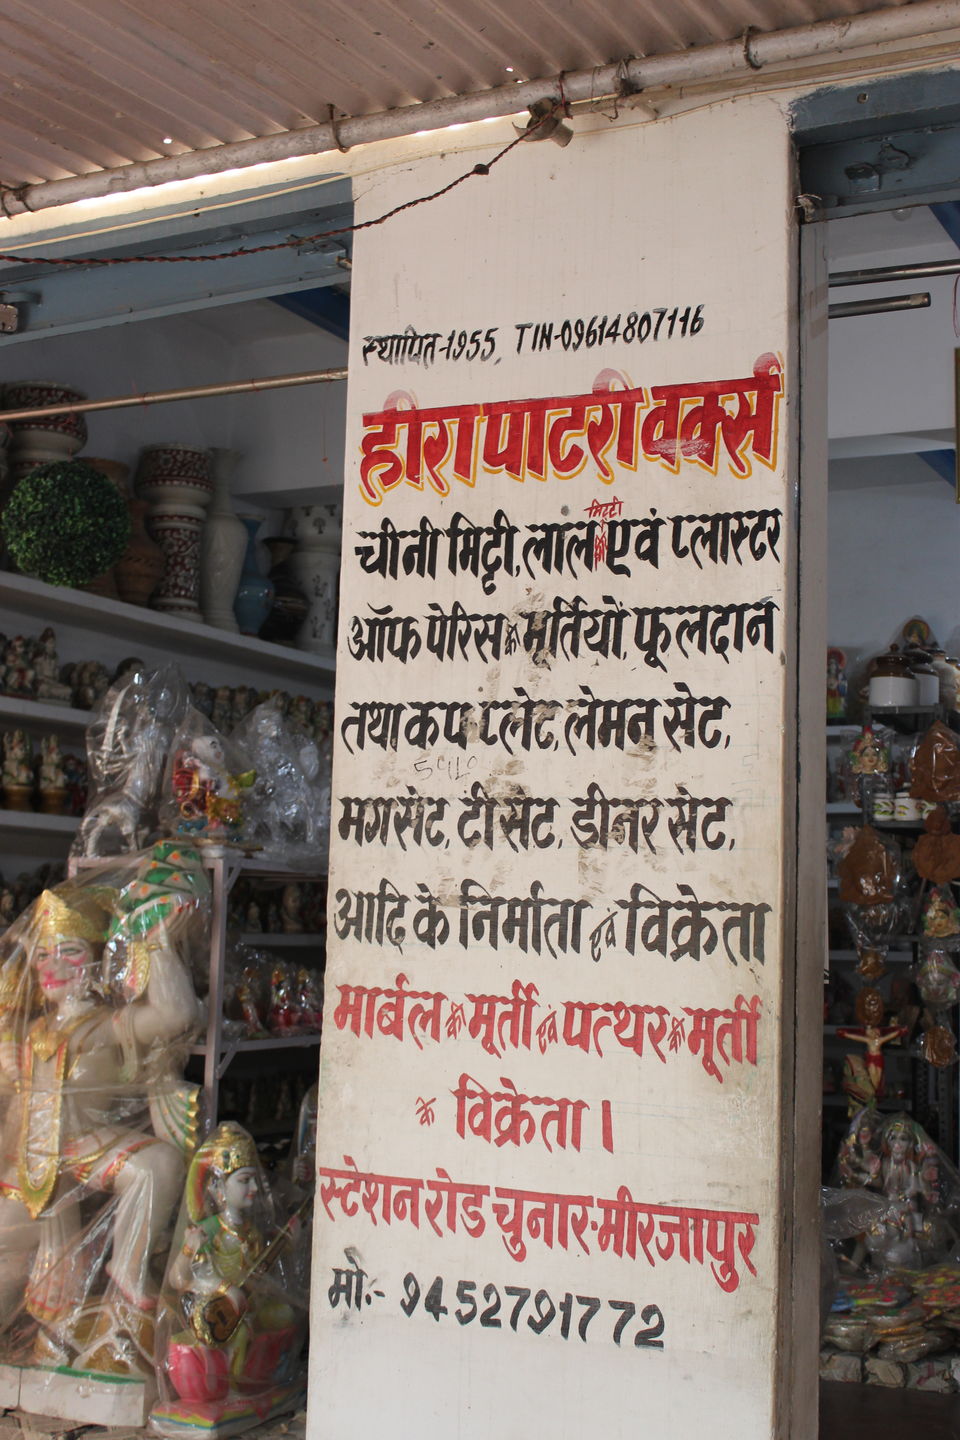 स्थापित-1955, TIN-09614807116
हीरा पाटरी वर्क्स
मिट्टी
चीनी मिट्टी, लाल एवं प्लास्टर
ऑफ पेरिस के मूर्तियों, फूलदान
तथा कप प्लेट, लेमन सेट,
मग सेट, टी सेट, डीनर सेट,
आदि के निर्माता एवं विक्रेता
मार्बल के मूर्ती एवं पत्थर के मूर्ती
के विक्रेता।
स्टेशन रोड चुनार-मीरजापुर
मो:- 9452791772